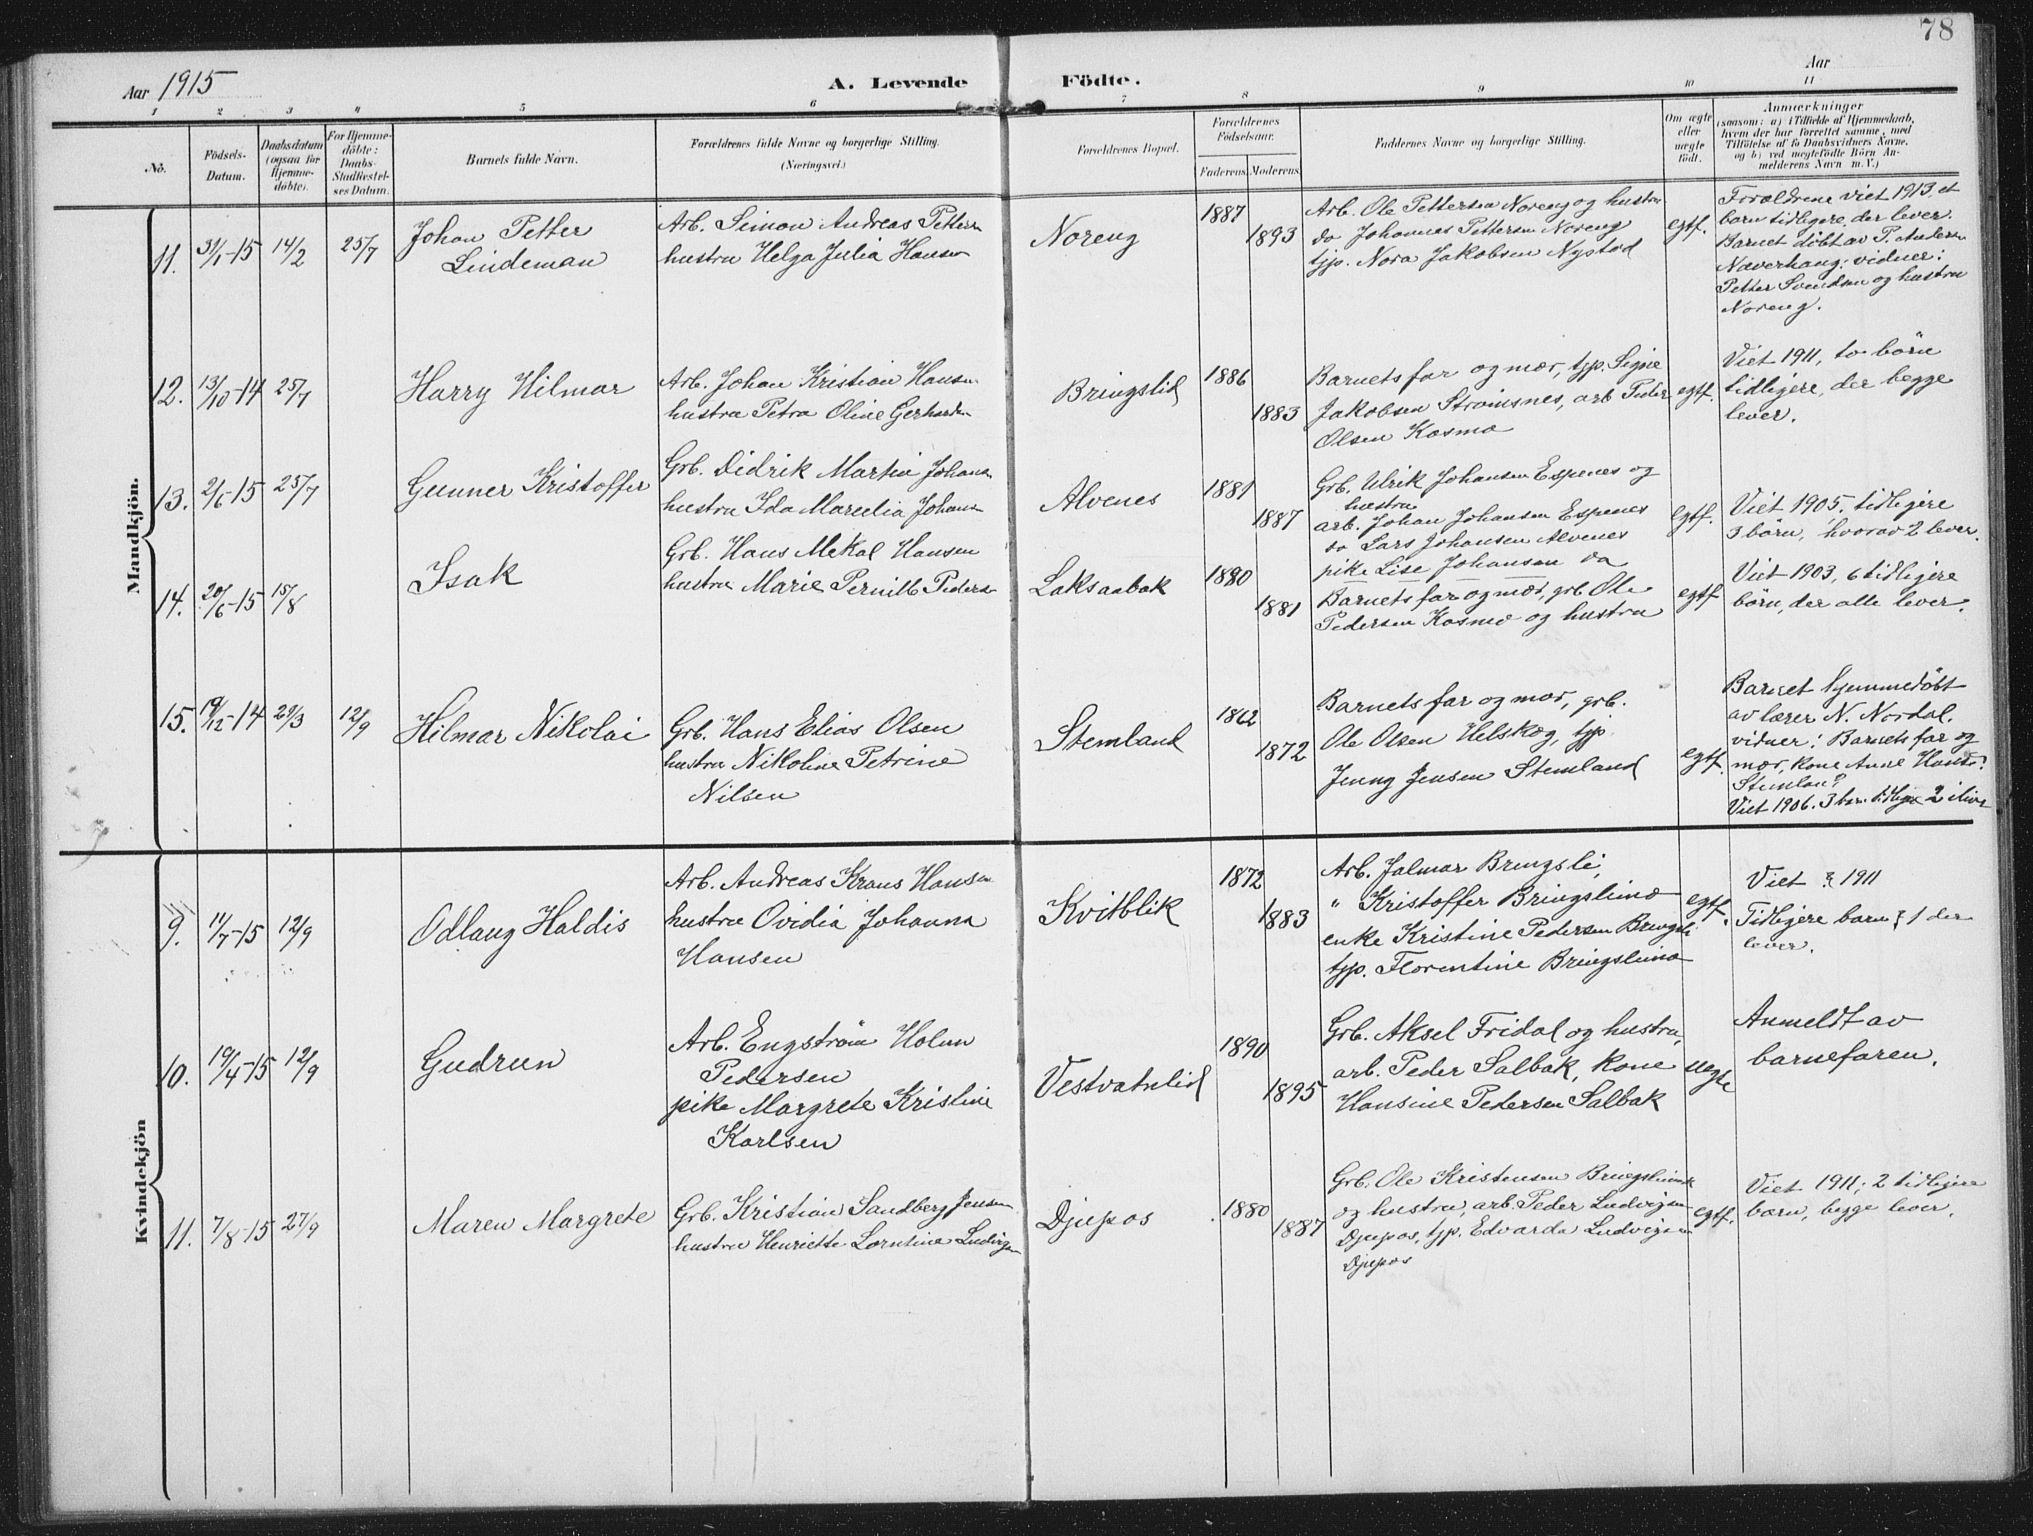 78
Aar 1915
A. Levende Födte.
Aar
1 2 3 4 5 6 7 8 9 10 11
No.
Födsels-Datum.
Daabsdatum (ogsaa for Hjemmedöbte).
For Hjemmedöbte: Daabs-Stadfæstelses Datum.
Barnets fulde Navn.
Forældrenes fulde Navne og borgerlige Stilling.
(Næringsvei.)
Forældrenes Bopæl.
Forældrenes Födselsaar.
Faderens. Moderens.
Faddernes Navne og borgerlige Stilling.
Om ægte eller uægte födt.
Anmærkninger
(saasom: a) i Tilfælde af Hjemmedaab, hvem der har forrettet samme, med Tilföielse af to Daabsvidners Navne, og b) ved uegtefödte Börn Anmelderens Navn m. V.)
Mandkjön.
11. 31/1-15 14/2 25/7
Johan Petter
Lindeman
Arb. Simon Andreas Petters
hustru Helga Julia Hansen
Noreng
1887
1893
Arb. Ole Pettersen Noreng og hustru
do Johannes Pettersen Noreng
tjp. Nora Jakobsen Nystad
egtf.
Forældrene viet 1913. et
barn tidligere, der lever.
Barnet döbt av P. Anders
Naverhaug: vidner:
Petter Svendsen og hustru
Noreng.
12. 13/10-14 25/7
Harry Hilmar
Arb. Johan Kristian Hansen
hustru Petra Oline Gerhards
Bringslid
1886
1883
Barnets far og mor, tjp. Signe
Jakobsen Strömsnes, arb Peder
Olsen Kosmo
egtf.
Viet 1911, to börn
tidligere, der begge
lever.
13. 2/6-15 25/7
Gunner Kristoffer
Grb. Didrik Martin Johans
hustru Ida Marselia Johans
Alvenes
1881
1887
Grb. Ulrik Johansen Espenes og
hustru
arb. Johan Johansen Espenes
do Lars Johansen Alvenes
pike Lise Johansen do
egtf.
Viet 1905. tidligere
3 börn, hvorav 2 lever.
14. 20/6-15 15/8
Isak
Grb. Hans Mekal Hansen
hustru Marie Pernille Peders
Laksaabak
1880
1881
Barnets far og mor, grb Ole
Pedersen Kosmo og hustru
egtf
Viet 1903, 6 tidligere
börn, der alle lever.
15. 19/12-14 29/3 12/9
Hilmar Nikolai
Grb. Hans Elias Olsen
hustru Nikoline Petrine
Nilsen
Stemland
1862
1872
Barnets far og mor, grb.
Ole Olsen Helskog, tjp
Jenny Jensen Stemland
egtf.
Barnet hjemmedöbt
av lærer N. Nordal.
vidner: Barnets far og
mor, kone Anne Hans
Stemland
Viet 1906. 3 barn tidligere 2 ilive
Kvindekjön
9. 11/7-15 12/9
Odlaug Haldis
Arb. Andreas Kraus Hansen
hustru Ovidia Johanna
Hansen
Kvitblik
1872
1883
Arb. Jalmar Bringsli,
" Kristoffer Bringslimo
enke Kristine Pedersen Bringsli
tjp. Florentine Bringslimo
egtf.
Viet 1911
Tidligere barn 1 der
lever.
10. 19/4-15 12/9
Gudrun
Arb. Engström Holun
Pedersen
pike Margrete Kristine
Karlsen
Vestvatnlid
1890
1895
Grb. Aksel Fridal og hustru,
arb. Peder Salbak, kone
Hansine Pedersen Salbak
uegte
Anmeldt av
barnefaren.
11. 7/8-15 27/9
Maren Margrete
Grb. Kristian Sandberg Jensen
hustru Henriette Lorntine Ludvigs
Djupos
1880
1887
Grb. Ole Kristensen Bringslimo
og hustru, arb. Peder Ludvigsen
Djupos, tjp. Edvarda Ludvigsen
Djupos
egtf.
Viet 1911; 2 tidligere
börn, begge lever.